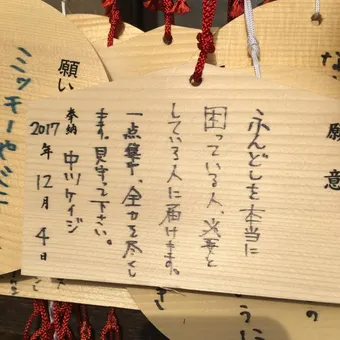 願意
ふんどしを本当に
困っている人、必要と
している人に届けます。
一点集中、全力を尽くし
ます。見守って下さい。
奉納 中川ケイジ
2017年12月4日
願い
ミッキーやミニ